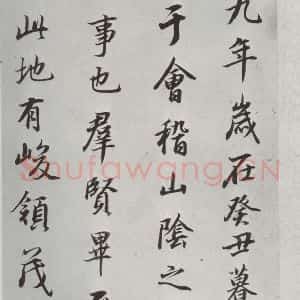 九年歲在癸丑暮
于會稽山陰之
事也羣賢畢
此地有峻領茂
Shufawang.CN